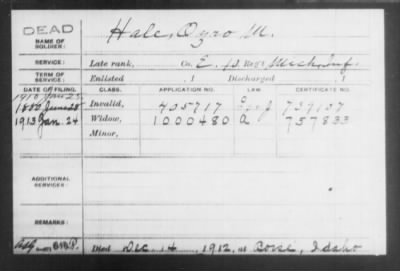 DEAD
NAME OF SOLDIER: Hale, Ozro M.
SERVICE: Late rank, Co. E, 13 Reg't Mich. Inf.
TERM OF SERVICE: Enlisted , 1 Discharged , 1
DATE OF FILING. CLASS. APPLICATION NO. LAW. CERTIFICATE NO.
1880 June 28 Invalid, 405717
1913 Jan. 24 Widow, 1000480 757833
Minor,
ADDITIONAL SERVICES:
REMARKS:
Died Dec. 14, 1912, at Boise, Idaho